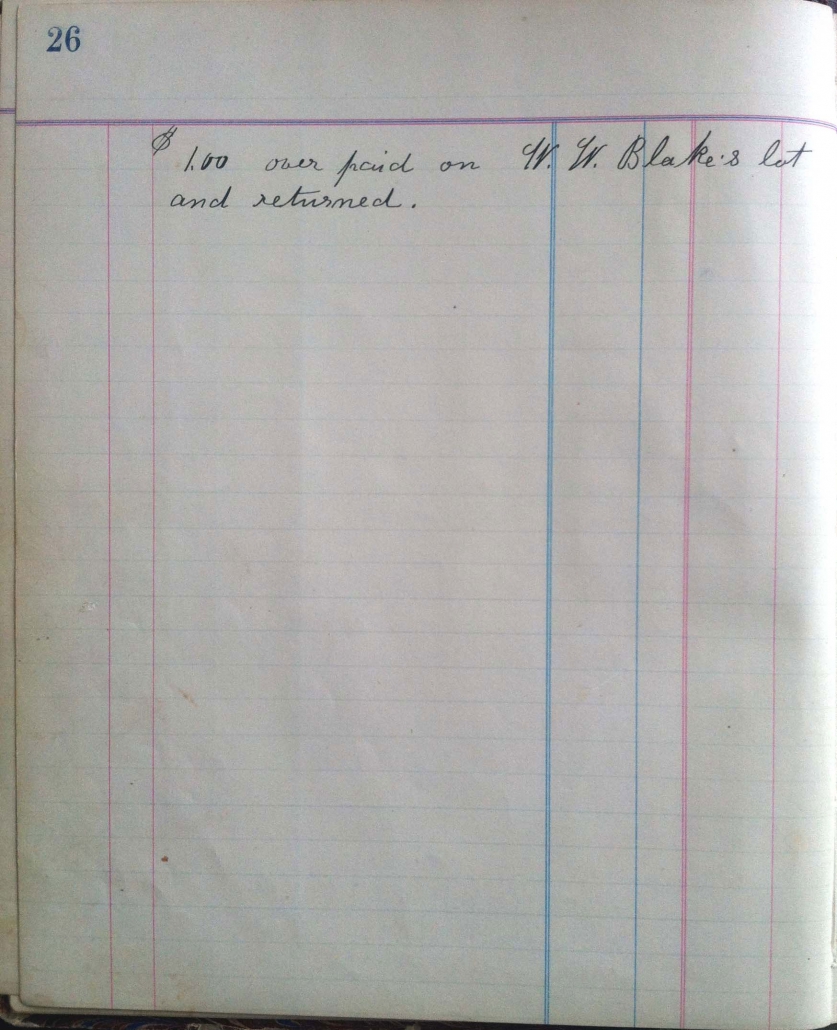 26
$1.00 over paid on W. W. Blake's lot
and returned.